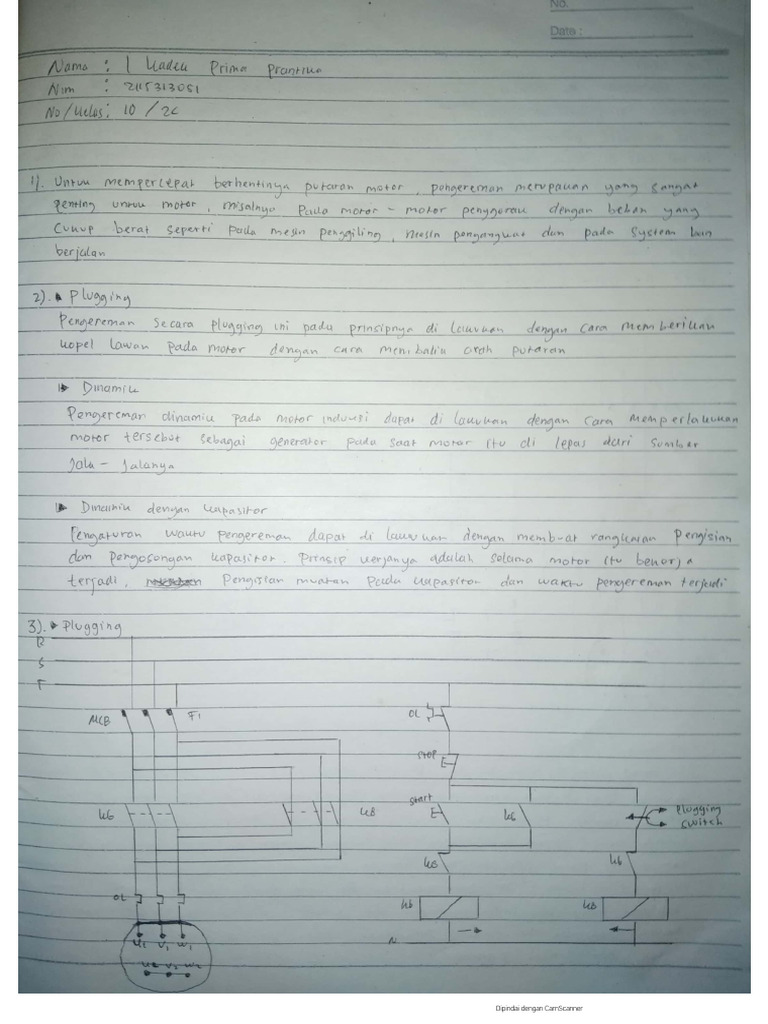 No.
Date :
Nama : I Kadek Prima Prantika
Nim : 2115313051
No/Kelas : 10 / 2C
1). Untuk mempercepat berhentinya putaran motor, pengereman merupakan yang sangat
penting untuk motor, misalnya pada motor - motor penggerak dengan beban yang
cukup berat seperti pada mesin penggiling, mesin pengangkat dan pada system lain
berjalan
2). Plugging
Pengereman secara plugging ini pada prinsipnya di lakukan dengan cara memberikan
kopel lawan pada motor dengan cara membalik arah putaran
Dinamik
Pengereman dinamik pada motor induksi dapat di lakukan dengan cara memperlakukan
motor tersebut sebagai generator pada saat motor itu di lepas dari sumber
Jala - Jalanya
Dinamik dengan kapasitor
Pengaturan waktu pengereman dapat di lakukan dengan membuat rangkaian Pengisian
dan pengosongan kapasitor. Prinsip kerjanya adalah selama motor itu
terjadi, Pengisian muatan pada kapasitor dan waktu pengereman terjadi
3). Plugging
R
S
T
MCB F1 OL
STOP
Start
K6 K8 K6 Plugging
Switch
K8 K6
OL K6 K8
N
U1 V1 W1
U2 V2 W2
Dipindai dengan CamScanner